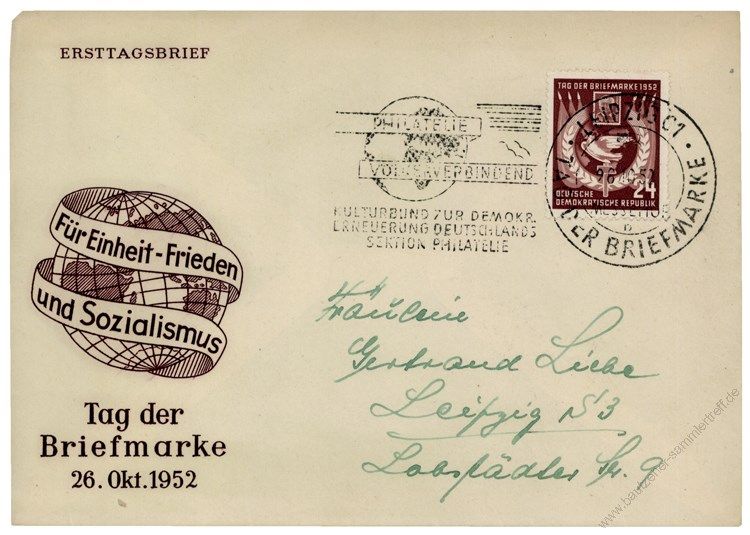 ERSTTAGSBRIEF
PHILATELIE
VÖLKERVERBINDEND
KULTURBUND ZUR DEMOKR.
ERNEUERUNG DEUTSCHLANDS
SEKTION PHILATELIE
TAG DER BRIEFMARKE 1952
DEUTSCHE
DEMOKRATISCHE REPUBLIK
24
LEIPZIG C1
TAG DER BRIEFMARKE
Für Einheit-Frieden
und Sozialismus
Tag der
Briefmarke
26. Okt. 1952
Fräulein
Gertraud Liebe
Leipzig S 3
Lobstädter Str. 9
www.bautzener-sammlertreff.de